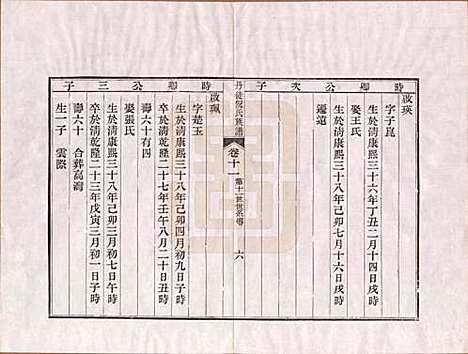 時卿公次子
啟瑛
字子崑
生於清康熙三十六年丁丑二月十四日戌時
娶王氏
生於清康熙三十八年己卯七月十六日戌時
遷遠
丹徒倪氏族譜
卷十一
第十一世世系傳
六
時卿公三子
啟珮
字楚玉
生於清康熙三十八年己卯六月初九日子時
卒於清乾隆二十七年壬午八月二十日丑時
壽六十有四
娶張氏
生於清康熙三十八年己卯三月初七日午時
卒於清乾隆二十三年戊寅三月初一日子時
壽六十 合葬高灣
生一子 雲際